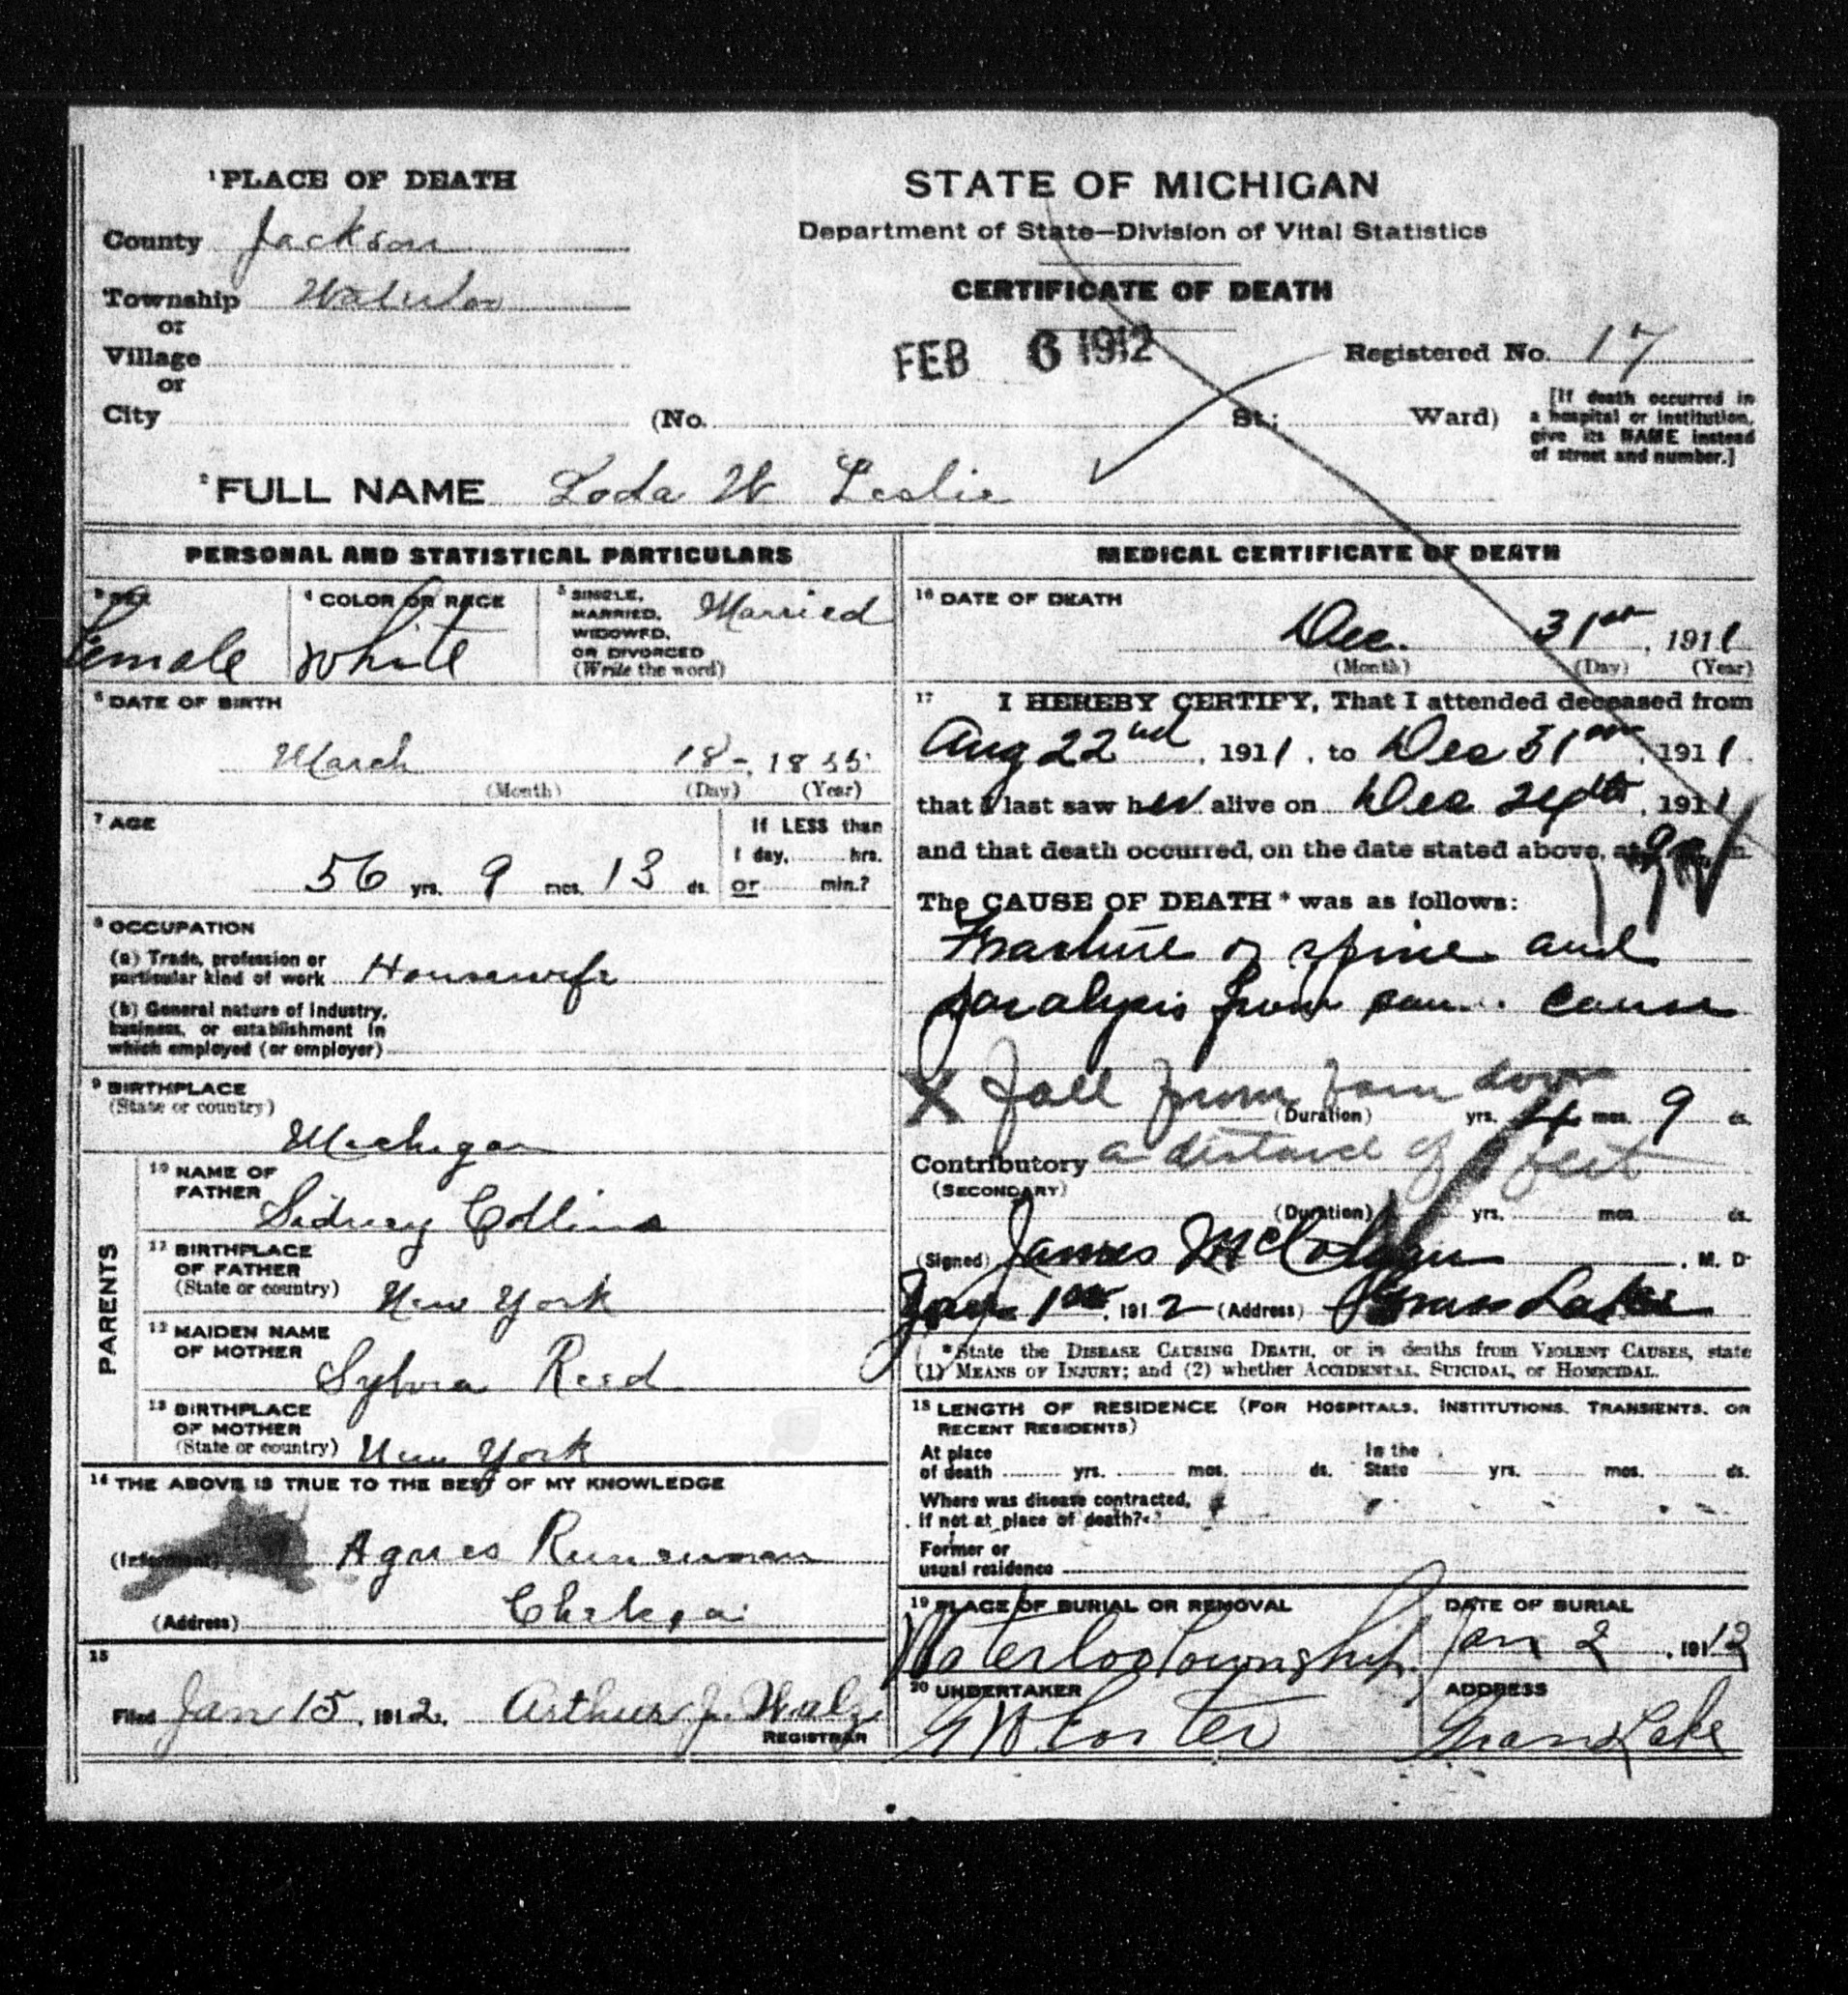 1 PLACE OF DEATH
County Jackson
Township Waterloo
or
Village
or
City
STATE OF MICHIGAN
Department of State—Division of Vital Statistics
CERTIFICATE OF DEATH
FEB 6 1912
Registered No. 17
(No. St.; Ward)
[If death occurred in
a hospital or institution,
give its NAME instead
of street and number.]
2 FULL NAME Loda W Leslie
PERSONAL AND STATISTICAL PARTICULARS
3 SEX
Female
4 COLOR OR RACE
White
5 SINGLE,
MARRIED,
WIDOWED,
OR DIVORCED
(Write the word)
Married
6 DATE OF BIRTH
March 18-, 1855
(Month) (Day) (Year)
7 AGE
56 yrs. 9 mos. 13 ds.
If LESS than
1 day, hrs.
or min.?
8 OCCUPATION
(a) Trade, profession or
particular kind of work Housewife
(b) General nature of industry,
business, or establishment in
which employed (or employer)
9 BIRTHPLACE
(State or country)
Michigan
PARENTS
10 NAME OF
FATHER
Sidney Collins
11 BIRTHPLACE
OF FATHER
(State or country) New York
12 MAIDEN NAME
OF MOTHER
Sylvia Reed
13 BIRTHPLACE
OF MOTHER
(State or country) New York
14 THE ABOVE IS TRUE TO THE BEST OF MY KNOWLEDGE
(Informant) Agnes Runciman
(Address) Chelsea
15
Filed Jan 15, 1912. Arthur J. Walz
REGISTRAR
MEDICAL CERTIFICATE OF DEATH
16 DATE OF DEATH
Dec. 31st, 1911
(Month) (Day) (Year)
17 I HEREBY CERTIFY, That I attended deceased from
Aug 22nd, 1911, to Dec 31st, 1911
that I last saw her alive on Dec 24th, 1911
and that death occurred, on the date stated above, at m.
The CAUSE OF DEATH* was as follows:
Fracture of spine and
paralysis from cause
X fall from barn door
(Duration) yrs. 4 mos. 9 ds.
Contributory a distance of feet
(SECONDARY)
(Duration) yrs. mos. ds.
(Signed) James McColgan, M. D.
Jan 1st, 1912 (Address) Grass Lake
*State the DISEASE CAUSING DEATH, or in deaths from VIOLENT CAUSES, state
(1) MEANS OF INJURY; and (2) whether ACCIDENTAL, SUICIDAL, or HOMICIDAL.
18 LENGTH OF RESIDENCE (FOR HOSPITALS, INSTITUTIONS, TRANSIENTS, OR
RECENT RESIDENTS)
At place
of death yrs. mos. ds.
In the
State yrs. mos. ds.
Where was disease contracted,
if not at place of death?
Former or
usual residence
19 PLACE OF BURIAL OR REMOVAL
Waterloo Township
DATE OF BURIAL
Jan 2, 1912
20 UNDERTAKER
ADDRESS
Grass Lake